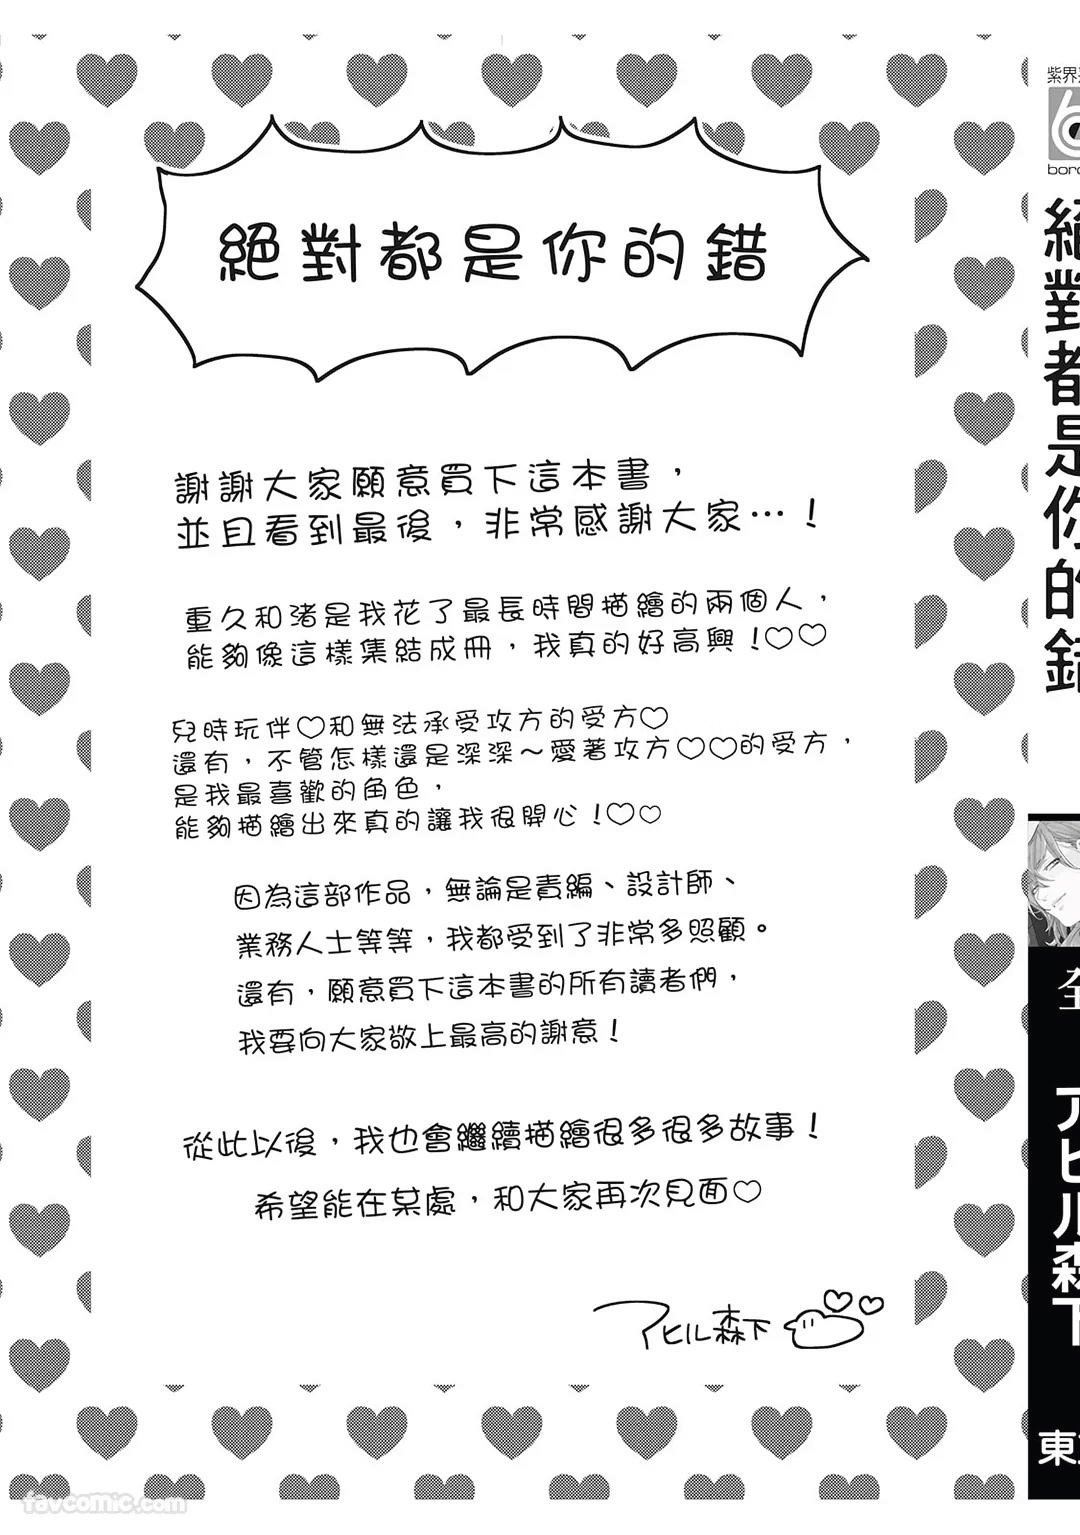 絕對都是你的錯
謝謝大家願意買下這本書，
並且看到最後，非常感謝大家…！
重久和渚是我花了最長時間描繪的兩個人，
能夠像這樣集結成冊，我真的好高興！♡♡
兒時玩伴♡和無法承受攻方的受方♡
還有，不管怎樣還是深深～愛著攻方♡♡的受方，
是我最喜歡的角色，
能夠描繪出來真的讓我很開心！♡♡
因為這部作品，無論是責編、設計師、
業務人士等等，我都受到了非常多照顧。
還有，願意買下這本書的所有讀者們，
我要向大家致上最高的謝意！
從此以後，我也會繼續描繪很多很多故事！
希望能在某處，和大家再次見面♡
アヒル森下
紫界
絕對都是你的錯
アヒル森下
東
favcomic.com